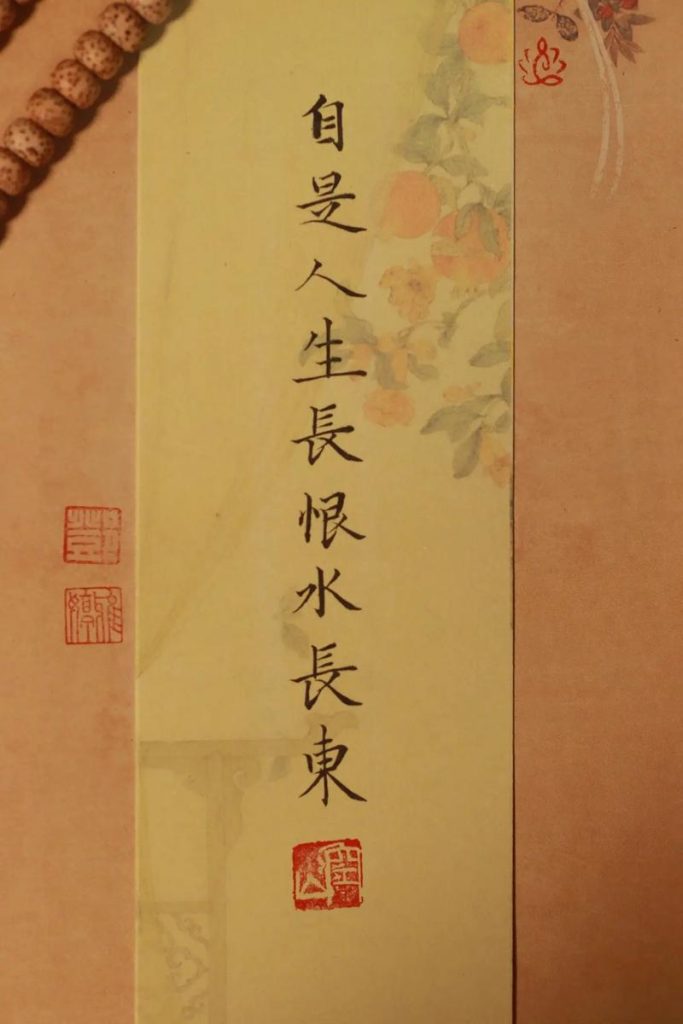 自是人生長恨水長東